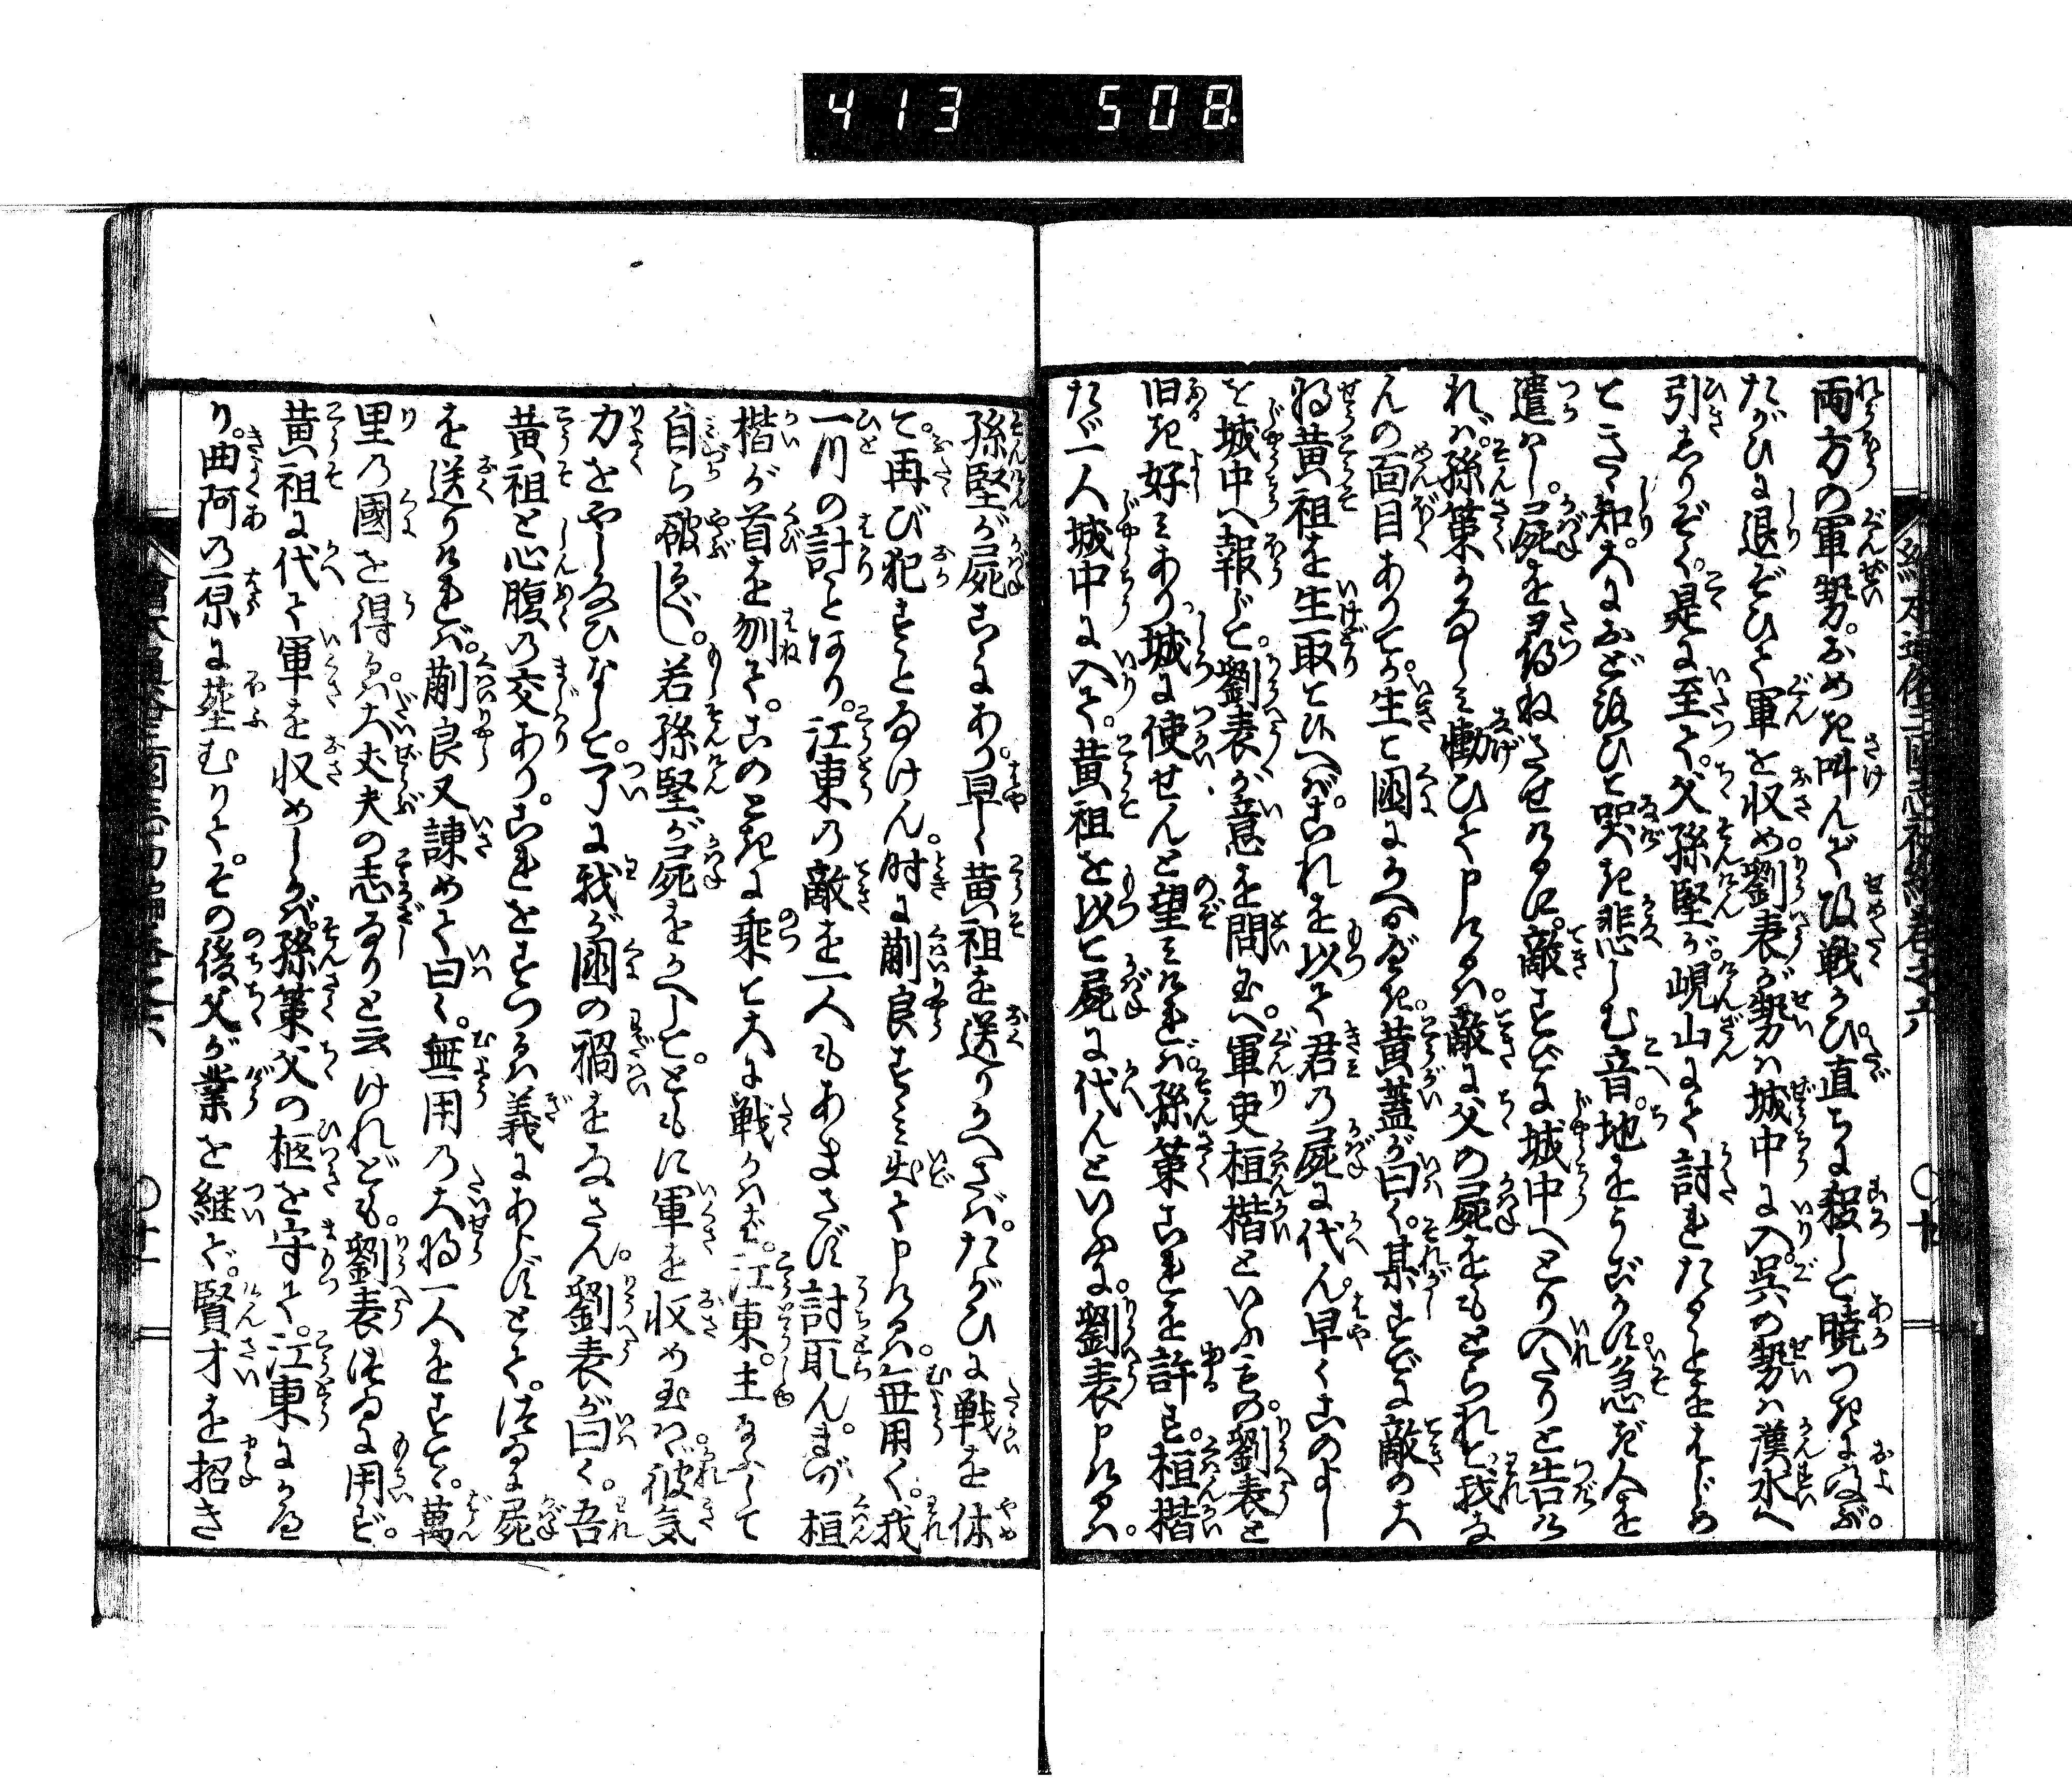 413 508
両方の軍勢。おめき叫んで攻戦かひ。直ちに殺して暁つきに及ぶ。
たがひに退ぞひて軍を収め。劉表が勢は城中に入。呉の勢は漢水へ
引しりぞく。是に至て。父孫堅が。峴山にて討れたることをはじめ
てきゝ知。大におどろひて哭き悲しむ音。地をうごかす。急ぎ人を
遣はし。屍を尋ねさせけるに。敵すでに城中へとり入たりと告け
れば。孫策かなしみ慟ひて申けるは。敵に父の屍をもとられて。我な
んの面目ありてか。生て國にかへるべき。黄蓋が曰く。某すでに敵の大
将黄祖を生取といへば。これを以て君の屍に代ん。早くこのよし
を城中へ報じて。劉表が意を問玉へ。軍吏桓楷といふもの。劉表と
旧き好みあり。城に使せんと望みければ。孫策これを許す。桓楷
たゞ一人城中に入て。黄祖を以て屍に代んといふに。劉表申けるは。
孫堅が屍こゝにあり。早く黄祖を送りかへさば。たがひに戦を休
て。再び犯すことなけん。時に蒯良すゝみ出て申けるは。無用く。我
一川の計とあり。江東の敵を一人もあまさず討取ん。まづ桓
楷が首を刎て。このときに乗て大に戦かはゞ。江東。主なふして
自ら破るべし。若孫堅が屍をかへして。ともに軍を収め玉はゞ。彼気
力をやしなひなして。了に我が國の禍をなさん。劉表が曰く。吾
黄祖と心腹の交あり。これをすつるは義にあらずとて。終に屍
を送りければ。蒯良又諫めて曰く。無用の大将一人をすてゝ。萬
里の國を得るは。大丈夫の志なりと云けれども。劉表つゐに用ず。
黄祖に代て軍を収めしかば。孫策父の柩を守て。江東にかへ
り。曲阿の原に葬むりて。その後父が業を継で。賢才を招き